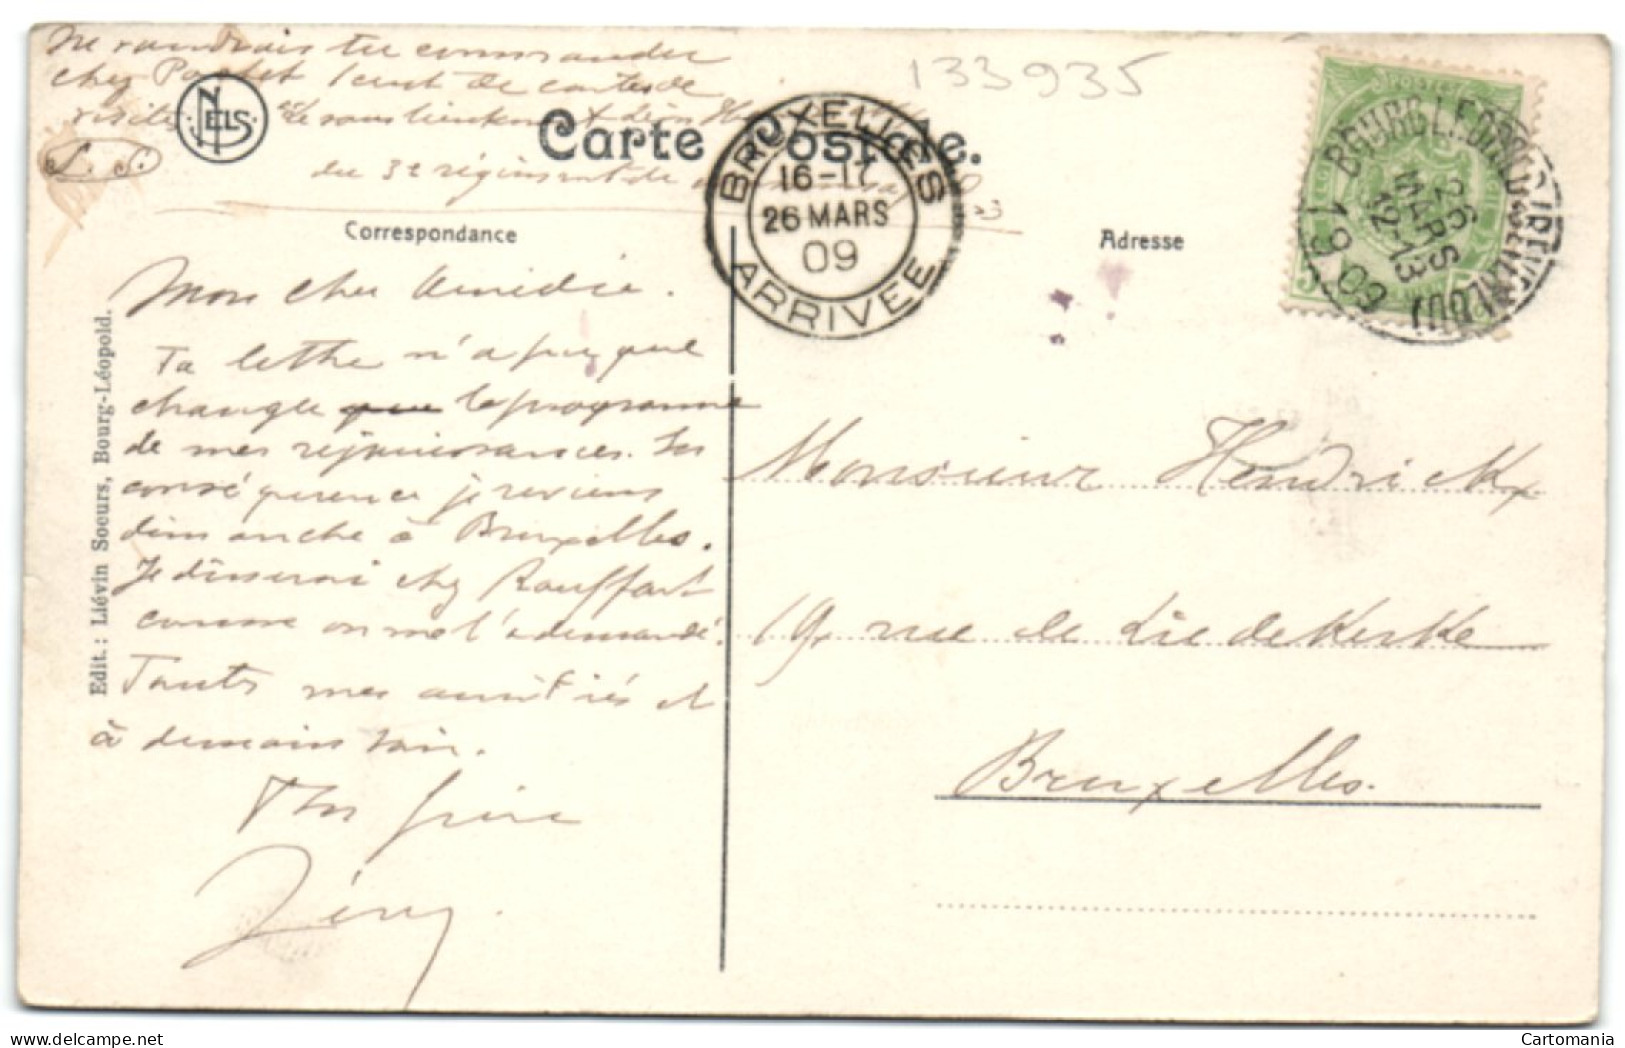 Ne voudrais tu commander
chez 1 cent de cartes de
visite de sous lieutenant
du 3e régiment de
L. S.
NELS
133935
Carte Postale.
BRUXELLES
16-17
26 MARS
09
ARRIVEE
BOURG-LEOPOLD
26 MARS
12-13
1909
Correspondance
Adresse
Edit.: Liévin Soeurs, Bourg-Léopold.
Mon cher Amédée.
Ta lettre n'a pu que
changer que le programme
de mes rejouissances. En
conséquence je reviens
dimanche à Bruxelles.
Je dînerai chez Rouffart
comme on me l'a demandé.
Toutes mes amitiés et
à demain soir.
Ton frère
Monsieur Hendrickx
19, rue de Liedekerke
Bruxelles.
Cartomania